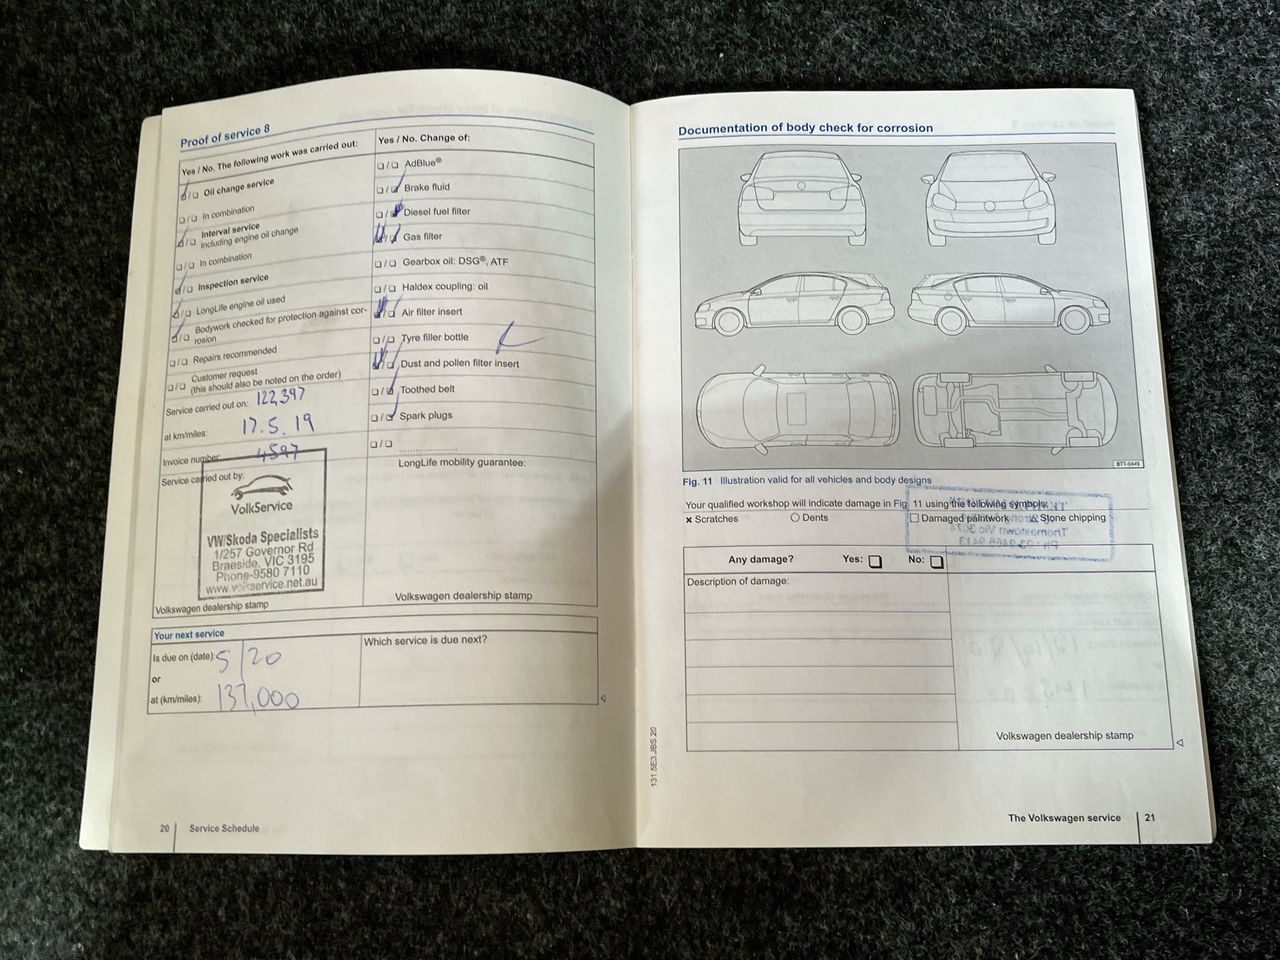 Proof of service 8
Yes / No. The following work was carried out:
☑/❑ Oil change service
❑/❑ In combination
☑/❑ Interval service
including engine oil change
❑/❑ In combination
☑/❑ Inspection service
☑/❑ LongLife engine oil used
☑/❑ Bodywork checked for protection against cor-
rosion
❑/❑ Repairs recommended
❑/❑ Customer request
(this should also be noted on the order)
Service carried out on: 122,397
at km/miles: 17.5.19
Invoice number: 4597
Service carried out by:
VolkService
VW/Skoda Specialists
1/257 Governor Rd
Braeside, VIC 3195
Phone-9580 7110
www.volkservice.net.au
Volkswagen dealership stamp
Yes / No. Change of:
❑/❑ AdBlue®
❑/☑ Brake fluid
❑/☑ Diesel fuel filter
☑/☑ Gas filter
❑/❑ Gearbox oil: DSG®, ATF
❑/❑ Haldex coupling: oil
☑/❑ Air filter insert
❑/❑ Tyre filler bottle
☑/❑ Dust and pollen filter insert
❑/☑ Toothed belt
❑/☑ Spark plugs
❑/❑ ....................
LongLife mobility guarantee:
Volkswagen dealership stamp
Your next service
Is due on (date): 5/20
or
at (km/miles): 137,000
Which service is due next?
20 Service Schedule
Documentation of body check for corrosion
BTT-0449
Fig. 11 Illustration valid for all vehicles and body designs
Your qualified workshop will indicate damage in Fig. 11 using the following symbols:
× Scratches ○ Dents □ Damaged paintwork △ Stone chipping
Any damage? Yes: ❑ No: ❑
Description of damage:
Volkswagen dealership stamp
131.5E3.JBS.20
The Volkswagen service 21